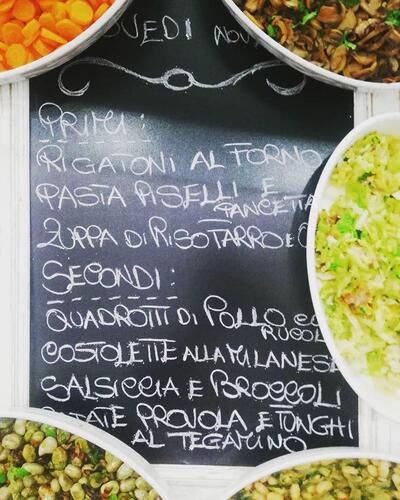 PRIMI:
RIGATONI AL FORNO
PASTA PISELLI E
PANCETTA
ZUPPA DI RISOTARRO E
SECONDI:
QUADROTTI DI POLLO CO
RUCOL
COSTOLETTE ALLA MILANESE
SALSICCIA E BROCCOLI
PATATE PROVOLA E FUNGHI
AL TEGAMINO